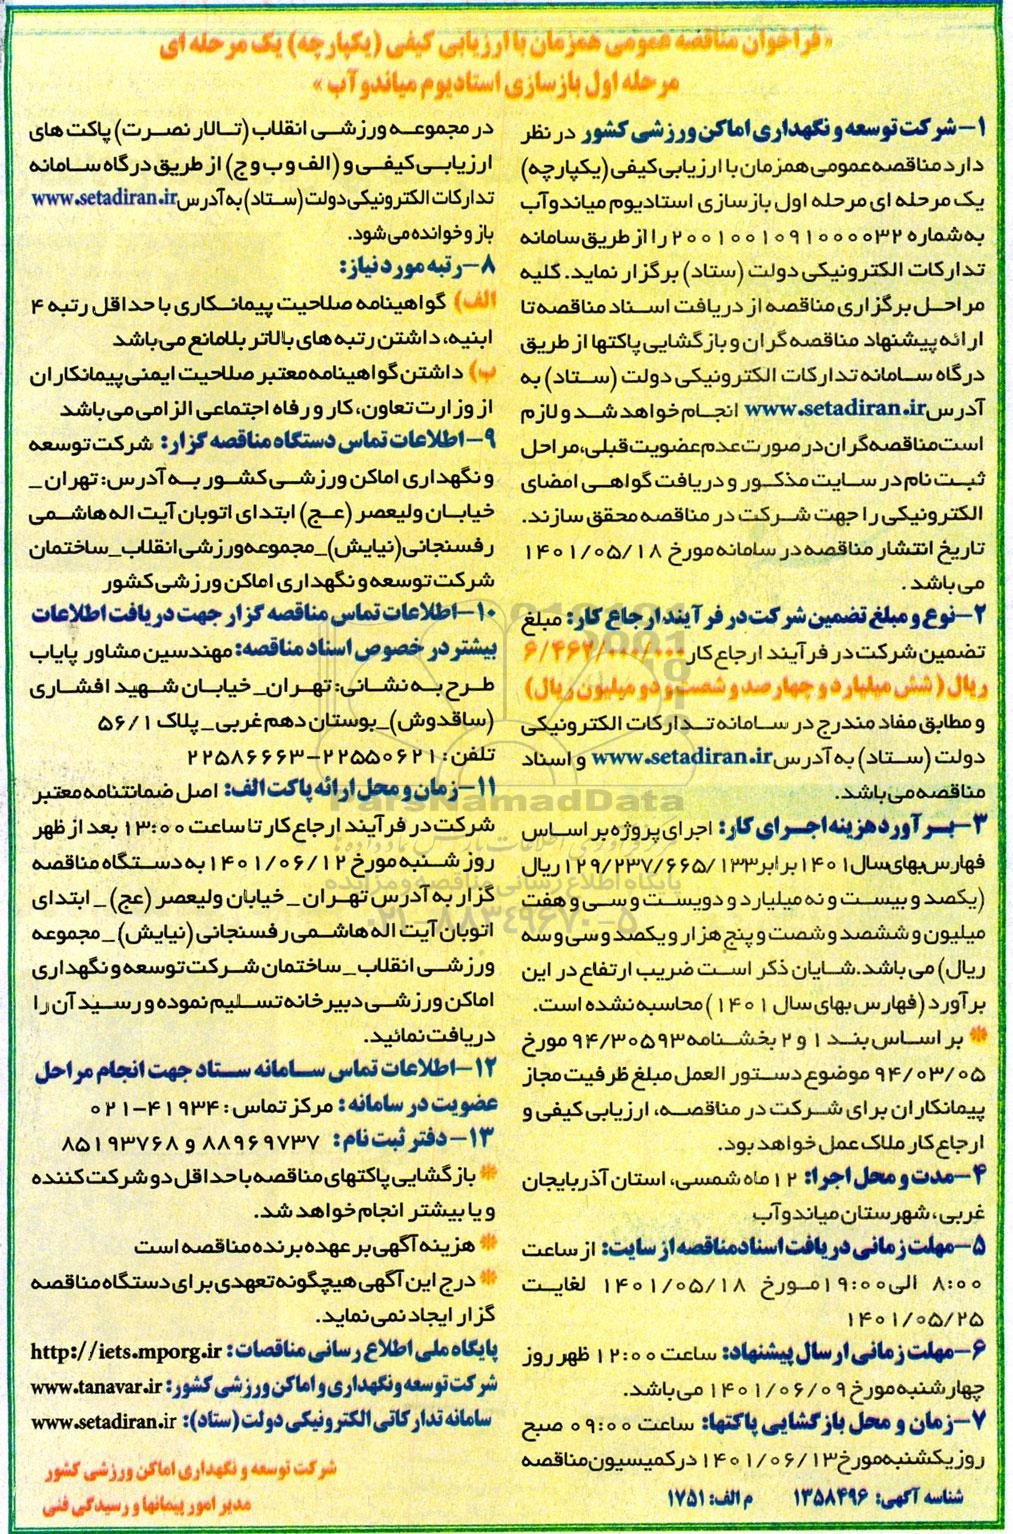 «فراخوان مناقصه عمومی همزمان با ارزیابی کیفی (یکپارچه) یک مرحله ای
مرحله اول بازسازی استادیوم میاندوآب»
۱- شرکت توسعه و نگهداری اماکن ورزشی کشور در نظر
دارد مناقصه عمومی همزمان با ارزیابی کیفی (یکپارچه)
یک مرحله ای مرحله اول بازسازی استادیوم میاندوآب
به شماره ۲۰۰۱۰۰۱۰۹۱۰۰۰۰۳۲ را از طریق سامانه
تدارکات الکترونیکی دولت (ستاد) برگزار نماید. کلیه
مراحل برگزاری مناقصه از دریافت اسناد مناقصه تا
ارائه پیشنهاد مناقصه گران و بازگشایی پاکتها از طریق
درگاه سامانه تدارکات الکترونیکی دولت (ستاد) به
آدرس www.setadiran.ir انجام خواهد شد و لازم
است مناقصه گران در صورت عدم عضویت قبلی، مراحل
ثبت نام در سایت مذکور و دریافت گواهی امضای
الکترونیکی را جهت شرکت در مناقصه محقق سازند.
تاریخ انتشار مناقصه در سامانه مورخ ۱۴۰۱/۰۵/۱۸
می باشد.
۲- نوع و مبلغ تضمین شرکت در فرآیند ارجاع کار: مبلغ
تضمین شرکت در فرآیند ارجاع کار ۶/۴۶۲/۰۰۰/۰۰۰
ریال (شش میلیارد و چهارصد و شصت و دو میلیون ریال)
و مطابق مفاد مندرج در سامانه تدارکات الکترونیکی
دولت (ستاد) به آدرس www.setadiran.ir و اسناد
مناقصه می باشد.
۳- برآورد هزینه اجرای کار: اجرای پروژه بر اساس
فهارس بهای سال ۱۴۰۱ برابر ۱۲۹/۲۳۷/۶۶۵/۱۳۳ ریال
(یکصد و بیست و نه میلیارد و دویست و سی و هفت
میلیون و ششصد و شصت و پنج هزار و یکصد و سی و سه
ریال) می باشد. شایان ذکر است ضریب ارتفاع در این
برآورد (فهارس بهای سال ۱۴۰۱) محاسبه نشده است.
* بر اساس بند ۱ و ۲ بخشنامه ۹۴/۳۰۵۹۳ مورخ
۹۴/۰۳/۰۵ موضوع دستور العمل مبلغ ظرفیت مجاز
پیمانکاران برای شرکت در مناقصه، ارزیابی کیفی و
ارجاع کار ملاک عمل خواهد بود.
۴- مدت و محل اجرا: ۱۲ ماه شمسی، استان آذربایجان
غربی، شهرستان میاندوآب
۵- مهلت زمانی دریافت اسناد مناقصه از سایت: از ساعت
۸:۰۰ الی ۱۹:۰۰ مورخ ۱۴۰۱/۰۵/۱۸ لغایت
۱۴۰۱/۰۵/۲۵
۶- مهلت زمانی ارسال پیشنهاد: ساعت ۱۲:۰۰ ظهر روز
چهارشنبه مورخ ۱۴۰۱/۰۶/۰۹ می باشد.
۷- زمان و محل بازگشایی پاکتها: ساعت ۰۹:۰۰ صبح
روز یکشنبه مورخ ۱۴۰۱/۰۶/۱۳ در کمیسیون مناقصه
در مجموعه ورزشی انقلاب (تالار نصرت) پاکت های
ارزیابی کیفی و (الف و ب و ج) از طریق درگاه سامانه
تدارکات الکترونیکی دولت (ستاد) به آدرس www.setadiran.ir
باز و خوانده می شود.
۸- رتبه مورد نیاز:
الف) گواهینامه صلاحیت پیمانکاری با حداقل رتبه ۴
ابنیه، داشتن رتبه های بالاتر بلامانع می باشد
ب) داشتن گواهینامه معتبر صلاحیت ایمنی پیمانکاران
از وزارت تعاون، کار و رفاه اجتماعی الزامی می باشد
۹- اطلاعات تماس دستگاه مناقصه گزار: شرکت توسعه
و نگهداری اماکن ورزشی کشور به آدرس: تهران _
خیابان ولیعصر (عج) ابتدای اتوبان آیت اله هاشمی
رفسنجانی (نیایش) _ مجموعه ورزشی انقلاب _ ساختمان
شرکت توسعه و نگهداری اماکن ورزشی کشور
۱۰- اطلاعات تماس مناقصه گزار جهت دریافت اطلاعات
بیشتر در خصوص اسناد مناقصه: مهندسین مشاور پایاب
طرح به نشانی: تهران _ خیابان شهید افشاری
(ساقدوش) _ بوستان دهم غربی _ پلاک ۵۶/۱
تلفن: ۲۲۵۵۰۶۲۱-۲۲۵۸۶۶۶۳
۱۱- زمان و محل ارائه پاکت الف: اصل ضمانتنامه معتبر
شرکت در فرآیند ارجاع کار تا ساعت ۱۳:۰۰ بعد از ظهر
روز شنبه مورخ ۱۴۰۱/۰۶/۱۲ به دستگاه مناقصه
گزار به آدرس تهران _ خیابان ولیعصر (عج) _ ابتدای
اتوبان آیت اله هاشمی رفسنجانی (نیایش) _ مجموعه
ورزشی انقلاب _ ساختمان شرکت توسعه و نگهداری
اماکن ورزشی دبیرخانه تسلیم نموده و رسید آن را
دریافت نمائید.
۱۲- اطلاعات تماس سامانه ستاد جهت انجام مراحل
عضویت در سامانه: مرکز تماس: ۴۱۹۳۴-۰۲۱
۱۳- دفتر ثبت نام: ۸۸۹۶۹۷۳۷ و ۸۵۱۹۳۷۶۸
* بازگشایی پاکتهای مناقصه با حداقل دو شرکت کننده
و یا بیشتر انجام خواهد شد.
* هزینه آگهی بر عهده برنده مناقصه است
* درج این آگهی هیچگونه تعهدی برای دستگاه مناقصه
گزار ایجاد نمی نماید.
پایگاه ملی اطلاع رسانی مناقصات: http://iets.mporg.ir
شرکت توسعه و نگهداری و اماکن ورزشی کشور: www.tanavar.ir
سامانه تدارکاتی الکترونیکی دولت (ستاد): www.setadiran.ir
شرکت توسعه و نگهداری اماکن ورزشی کشور
مدیر امور پیمانها و رسیدگی فنی
شناسه آگهی: ۱۳۵۸۴۹۶ م الف: ۱۷۵۱
ParsNamadData
پایگاه اطلاع رسانی مناقصه و مزایده
۰۲۱-۸۸۳۴۹۶۷۰-۵